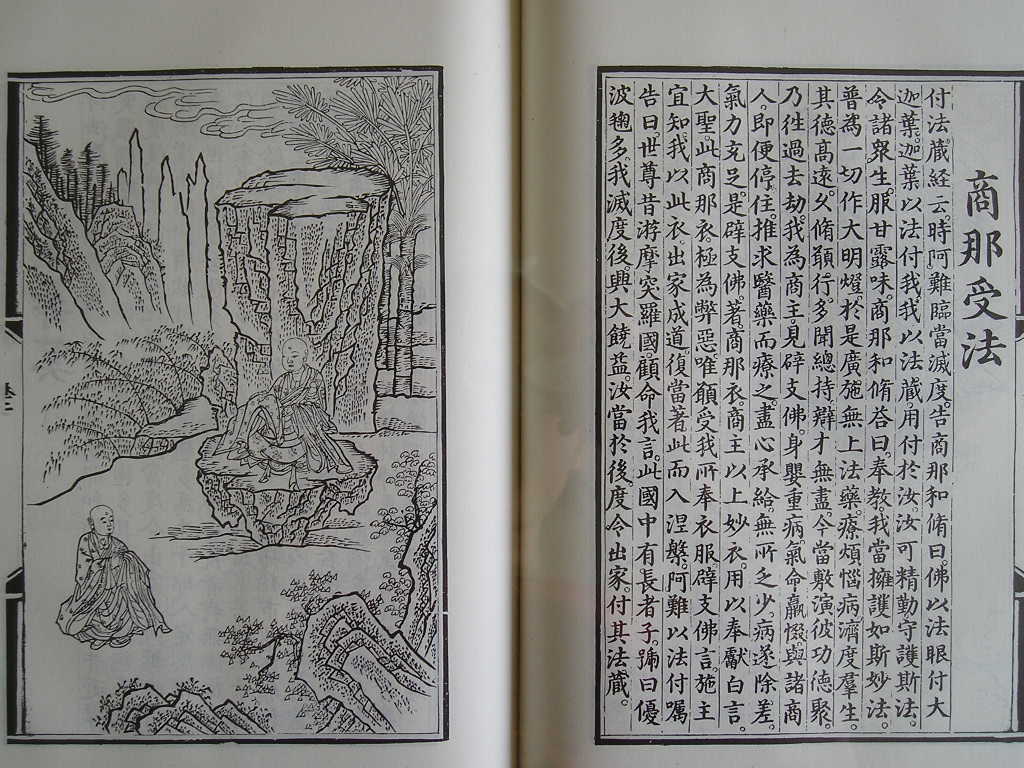 商那受法
付法藏経云。時阿難臨當滅度。告商那和脩曰。佛以法眼付大
迦葉。迦葉以法付我。我以法藏用付於汝。汝可精勤守護斯法。
令諸衆生。服甘露味。商那和脩答曰。奉教。我當擁護如斯妙法。
普為一切作大明燿。於是廣施無上法藥。療煩惱病。濟度羣生。
其德高遠。久脩願行。多聞總持。辯才無盡。今當敷演彼功德聚。
乃往過去劫。我為商主。見辟支佛。身嬰重病。氣命羸惙。與諸商
人。即便停住。推求醫藥而療之。盡心承給。無所乏少。病遂除差。
氣力充足。是辟支佛。著商那衣。商主以上妙衣。用以奉獻。白言
大聖。此商那衣。極為弊惡。唯願受我所奉衣服。辟支佛言。施主
宜知。我以此衣出家成道。復當著此而入涅槃。阿難以法付囑
告曰。世尊昔游摩突羅國。顧命我言。此國中有長者子。號曰優
波毱多。我滅度後興大饒益。汝當於後度令出家。付其法藏。